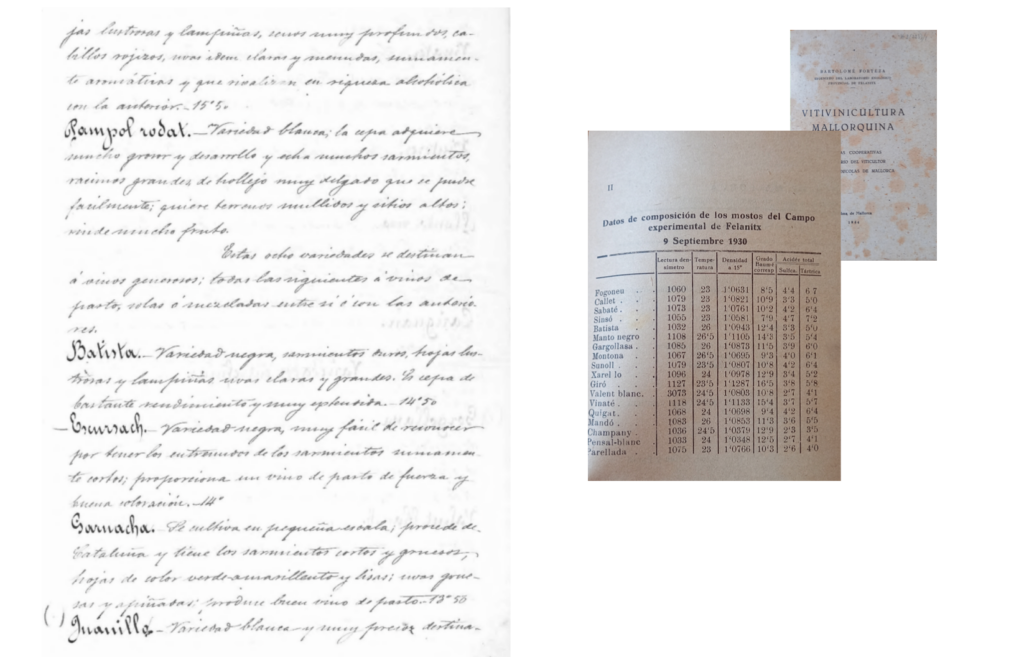 jas lustrosas y lampiñas, senos muy profundos, ca-
billos rojizos, uvas idem claras y menudas, sumamen-
te aromáticas y que rivalizan en riqueza alcohólica
con la anterior. 15'50
Pampol rodat. - Variedad blanca; la cepa adquiere
mucho grosor y desarrollo y echa muchos sarmientos,
racimos grandes, de hollejo muy delgado que se pudre
facilmente; quiere terrenos mullidos y sitios altos;
rinde mucho fruto.
Estas ocho variedades se destinan
á vinos generosos; todas las siguientes á vinos de
pasto, solas ó mezcladas entre si ó con las anterio-
res.
Batista. - Variedad negra, sarmientos duros, hojas lus-
trosas y lampiñas uvas claras y grandes. Es cepa de
bastante rendimiento y muy extendida. 14'50
Escursach. - Variedad negra, muy fácil de reconocer
por tener los entrenudos de los sarmientos sumamen-
te cortos; proporciona un vino de pasto de fuerza y
buena coloración. - 14°
Garnacha. - Se cultiva en pequeña escala; procede de
Cataluña y tiene los sarmientos cortos y gruesos,
hojas de color verde-amarillento y lisas; uvas grue-
sas y apiñadas; produce buen vino de pasto. 13°50
Juanillo - Variedad blanca y muy precoz destina-
BARTHOLOMÉ
VITIVINICULTURA
MALLORQUINA
COOPERATIVAS
DEL VITICULTOR
VINÍCOLAS DE MALLORCA
II
Datos de composición de los mostos del Campo
experimental de Felanitx
9 Septiembre 1930
Lectura den- Tempe- Densidad Grado Acidez total
símetro ratura a 15° Baumé
corresp. Sulfca. Tártrica
Fogoneu 1060 23 1'0631 8'5 4'4 6 7
Callet 1079 23 1'0821 10'9 3'3 5'0
Sabaté 1073 23 1'0761 10'2 4'2 6'4
Sinsó 1055 23 1'0581 7'9 4'7 7'2
Batista 1032 26 1'0943 12'4 3'3 5'0
Manto negro 1108 26'5 1'1105 14'3 3'5 5'4
Gargollasa 1085 26 1'0873 11'5 3'9 6'0
Montona 1067 26'5 1'0695 9'3 4'0 6'1
Sunoll 1079 23'5 1'0807 10'8 4'2 6'4
Xarel lo 1096 24 1'0978 12'9 3'4 5'2
Giró 1127 23'5 1'1287 16'5 3'8 5'8
Valent blanc. 3073 24'5 1'0803 10'8 2'7 4'1
Vinaté 1118 24'5 1'1133 15'4 3'7 5'7
Quigat 1068 24 1'0698 9'4 4'2 6'4
Mandó 1083 26 1'0853 11'3 3'6 5'5
Champany 1036 24'5 1'0379 12'9 2'3 3'5
Pensal-blanc 1033 24 1'0348 12'5 2'7 4'1
Parellada 1075 23 1'0766 10'3 2'6 4'0